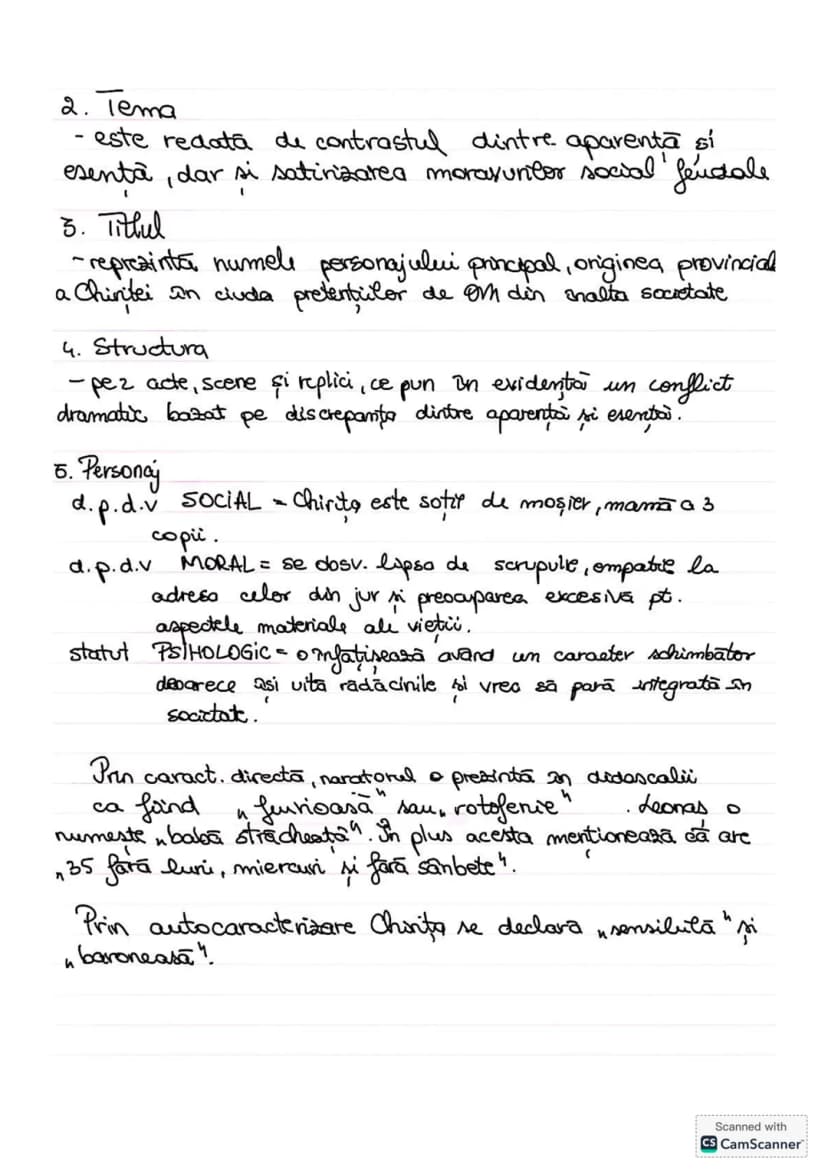 2. Tema
- este redată de contrastul dintre aparență și
esență, dar și satirizarea moravurilor social feudale
3. Titlul
- reprezintă numele personajului principal, originea provincial
a Chiriței în ciuda pretențiilor de OM din înalta societate
4. Structura
- pe 2 acte, scene și replici, ce pun în evidență un conflict
dramatic bazat pe discrepanța dintre aparență și esență.
5. Personaj
d.p.d.v SOCIAL - Chirița este soție de moșier, mamă a 3
copii.
d.p.d.v MORAL = se dosv. lipsa de scrupule, empatie la
adresa celor din jur și preocuparea excesivă pt.
aspectele materiale ale vieții.
statut PSIHOLOGIC = o înfățișează având un caracter schimbător
deoarece își uită rădăcinile și vrea să pară integrată în
societate.
Prin caract. directă, naratorul o prezintă în didascalii
ca fiind „furioasă" sau „rotofenie". Leonaș o
numește „babă strâcheată". În plus acesta menționează că are
„35 fără luni, miercuri și fără sâmbete".
Prin autocaracterizare Chirița se declară „sensilută" și
„baronească".
Scanned with
CS CamScanner